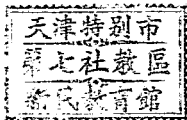 天津特别市
第七社教區
新民教育館